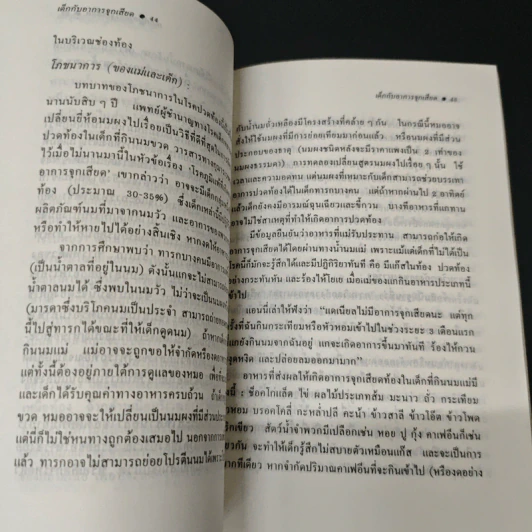 เด็กกับอาการจุกเสียด ● 44
ในบริเวณช่องท้อง
โภชนาการ (ของแม่และเด็ก) :
บทบาทของโภชนาการในโรคปวดท้อง
นานนับสิบ ๆ ปี แพทย์ผู้ชำนาญทางโรคเด็ก
เปลี่ยนยี่ห้อนมผงไปเรื่อยเป็นวิธีที่ดีที่สุด
ปวดท้องในเด็กที่กินนมขวด วารสารทาง
ไว้เมื่อไม่นานมานี้ในหัวข้อเรื่อง 'โรคภูมิแพ้
อาการจุกเสียด' เขากล่าวว่า อาจจะมีเด็ก
ท้อง (ประมาณ 30-35%) ซึ่งเด็กเหล่านี้
ผลิตภัณฑ์นมที่มาจากนมวัว และอาการ
หรือทำให้หายไปได้อย่างสิ้นเชิง หากงดให้
จากการศึกษาพบว่า ทารกบางคน
(เป็นน้ำตาลที่อยู่ในนม) ดังนั้นแกจะไม่สามารถ
น้ำตาลนมได้ ซึ่งพบในนมวัว ไม่ว่าจะเป็นนม
(มารดาซึ่งบริโภคนมเป็นประจำ สามารถถ่ายทอด
นี้ไปสู่ทารกได้ขณะที่ให้เด็กดูดนม) ถ้าหาก
กินนมแม่ แม่อาจจะถูกขอให้จำกัดหรืองด
แต่ทั้งนี้ต้องอยู่ภายใต้การดูแลของหมอ เพื่อ
และเด็กได้รับคุณค่าทางอาหารครบถ้วน ถ้า
ขวด หมออาจจะให้เปลี่ยนเป็นนมผงที่มีส่วน
แต่นี่ก็ไม่ใช่หนทางถูกต้องเสมอไป นอกจาก
แล้ว ทารกอาจไม่สามารถย่อยโปรตีนนมได้เพราะ
เด็กกับอาการจุกเสียด ● 45
กับน้ำนมถั่วเหลืองมีโครงสร้างที่คล้าย ๆ กัน ในกรณีนี้หมออาจ
สั่งให้ใช้นมผงที่มีการย่อยเทียมมาก่อนแล้ว หรือนมผงที่มีส่วน
ประกอบของธาตุ (นมผงชนิดหลังจะมีราคาแพงเป็น 2 เท่าของ
นมผงธรรมดา) การทดลองเปลี่ยนสูตรนมผงไปเรื่อย ๆ นั้น ใช้
เวลาและความอดทน แต่นมผงที่เหมาะกับเด็กสามารถช่วยบรรเทา
อาการปวดท้องในเด็กทารกบางคน แต่ถ้าหากผ่านไป 2 อาทิตย์
เด็กยังคงมีอารมณ์ฉุนเฉียวและขี้กวน บางทีอาหารที่แกทาน
อาจไม่ใช่สาเหตุที่ทำให้เกิดอาการปวดท้อง
มีข้อมูลยืนยันว่าอาหารที่แม่รับประทาน สามารถก่อให้เกิด
อาการจุกเสียดได้โดยผ่านทางน้ำนมแม่ เพราะแม้แต่เด็กที่ไม่ได้เป็น
โรคนี้ก็มักจะรู้สึกได้และมีปฏิกิริยาทันที คือ มีแก๊สในท้อง ปวดท้อง
อย่างกระทันหัน และร้องไห้โยเย เมื่อแม่ของแกกินอาหารประเภทนี้
เข้าไป
แอนนี่เล่าให้ฟังว่า "แดเนียลไม่มีอาการจุกเสียดนะ แต่ทุก
ครั้งที่ฉันกินกระเทียมหรือหัวหอมเข้าไปในช่วงระยะ 3 เดือนแรก
ที่แกยังกินนมจากฉันอยู่ แกจะเกิดอาการขึ้นมาทันที ร้องให้กวน
หงุดหงิด และปล่อยลมออกมามาก"
อาหารที่ส่งผลให้เกิดอาการจุกเสียดท้องในเด็กที่กินนมแม่มี
ดังนี้ : ช็อคโกแล็ต ไข่ ผลไม้ประเภทส้ม มะนาว ถั่ว กระเทียม
หัวหอม บรอคโคลี่ กะหล่ำปลี คะน้า ข้าวสาลี ข้าวโอ๊ต ข้าวโพด
พริกเขียว สัตว์น้ำจำพวกมีเปลือกเช่น หอย ปู กุ้ง คาเฟอีนก็เช่น
เดียวกัน จะทำให้เด็กรู้สึกไม่สบายตัวเหมือนแก๊ส และจะเป็นการ
มากทีเดียว หากจำกัดปริมาณคาเฟอีนที่จะกินเข้าไป (หรืองดอย่าง